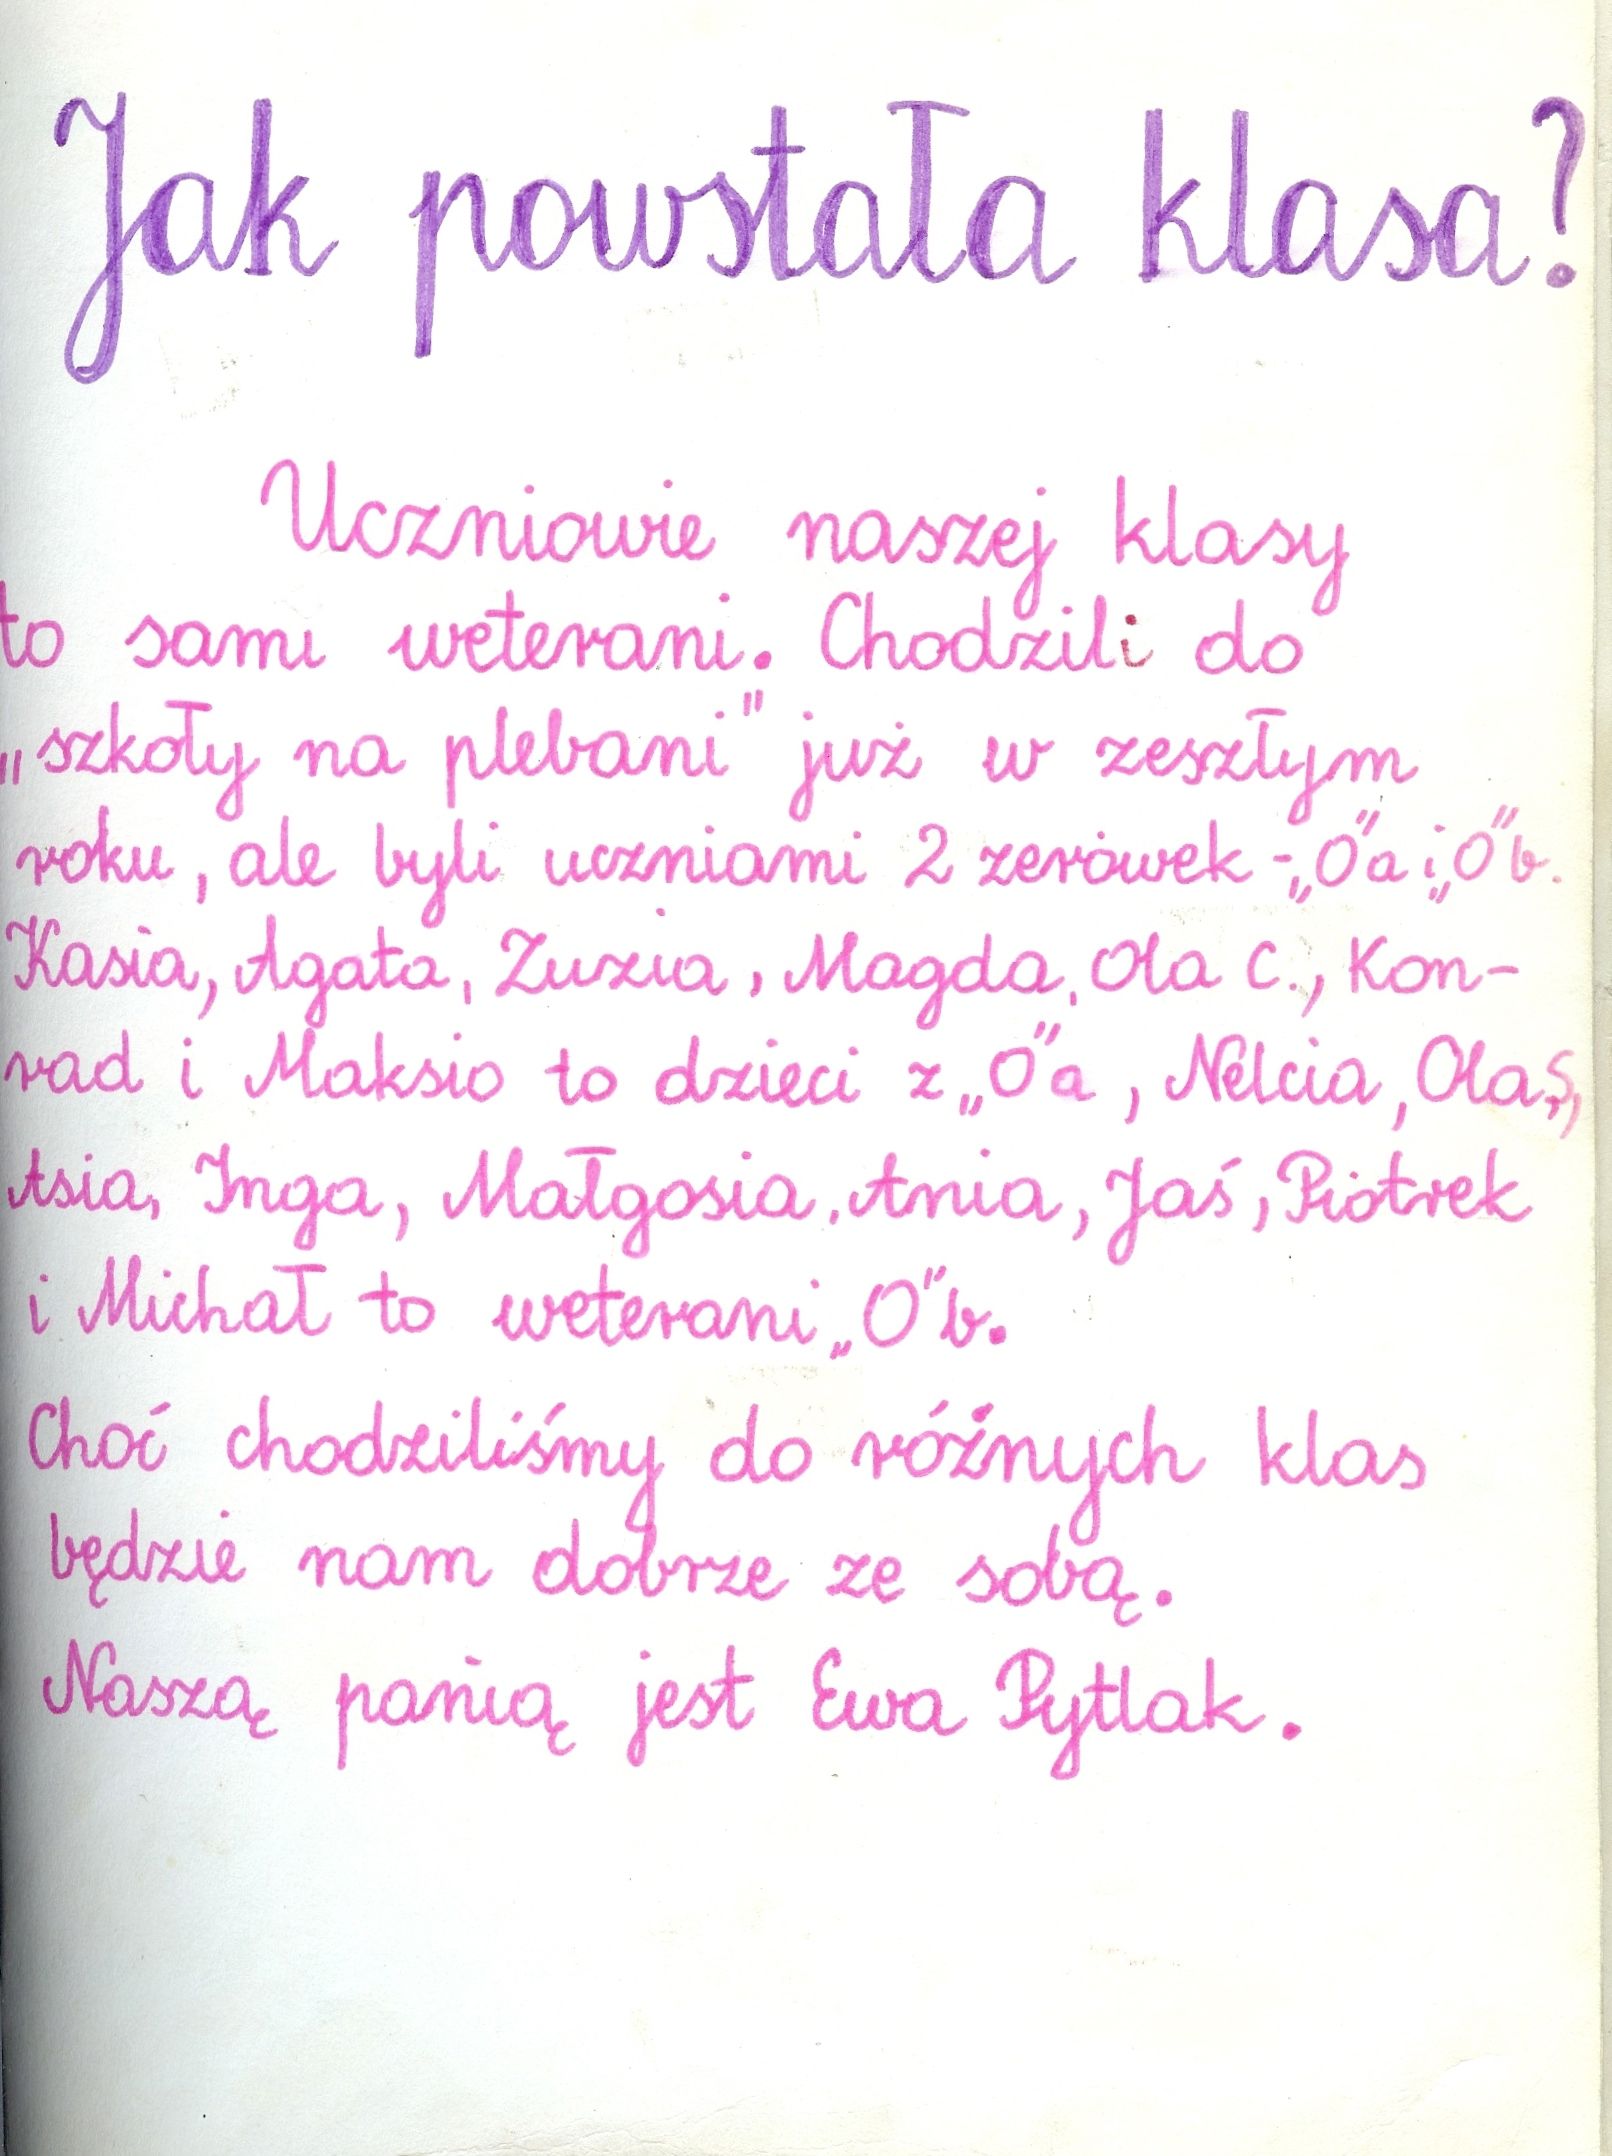 Jak powstała klasa?
Uczniowie naszej klasy
to sami weterani. Chodzili do
„szkoły na plebani" już w zeszłym
roku, ale byli uczniami 2 zerówek - „0"a i „0"b.
Kasia, Agata, Zuzia, Magda, Ola C., Kon-
rad i Maksio to dzieci z „0"a, Nelcia, Ola S,
Asia, Inga, Małgosia, Ania, Jaś, Piotrek
i Michał to weterani „0"b.
Choć chodziliśmy do różnych klas
będzie nam dobrze ze sobą.
Naszą panią jest Ewa Pytlak.